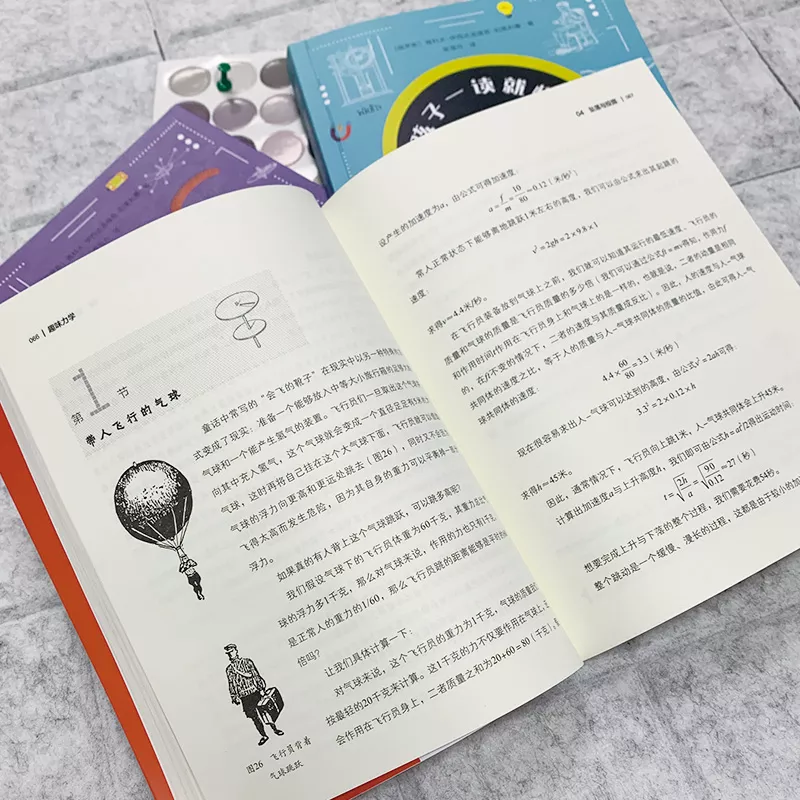 066 | 趣味力学
第1节
带人飞行的气球
童话中常写的“会飞的靴子”在现实中以另一种特殊
式变成了现实：准备一个能够放入中等大小旅行箱的足够
气球和一个能产生氢气的装置。飞行员们一旦取出这个气
向其中充入氢气，这个气球就会变成一个直径足足有5米
气球，这时再将自己挂在这个大气球下面，飞行员就可以
气球的浮力向更高和更远处跳去（图26），同时又不会
飞得太高而发生危险，因为其自身的重力可以平衡掉一部
浮力。
如果真的有人背上这个气球跳跃，可以跳多高呢？
我们假设气球下的飞行员体重为60千克，其重力
球的浮力多1千克，那么对气球来说，作用的力也只有
是正常人的重力的1/60，那么飞行员跳的距离能够是平时的
倍吗？
让我们具体计算一下：
对气球来说，这个飞行员的重力为1千克，气球的质量
按最轻的20千克来计算。这1千克的力不仅要作用在气球上，
会作用在飞行员身上，二者质量之和为20+60=80（千克），
图26 飞行员背着
气球跳跃
04 坠落与投掷 | 067
设产生的加速度为a，由公式可得加速度：
a=f/m=10/80≈0.12（米/秒²）
常人正常状态下能够离地跳跃1米左右的高度，我们可以由公式求出其起跳的
速度：
v²=2gh=2×9.8×1
求得v≈4.4米/秒。
在飞行员装备放到气球上之前，我们就可以知道其运行的最低速度。飞行员的
质量和气球的质量是飞行员质量的多少倍（我们可以通过公式ft=mv得知，作用力f
和作用时间t作用在飞行员身上和气球上的是一样的，也就是说，二者的动量是相同
的，在ft不变的情况下，二者的速度与其质量成反比）。因此，人的速度与人—气球
共同体的速度之比，等于人的质量与人—气球共同体的质量的比值，由此可得人—气
球共同体的速度：
4.4×60/80=3.3（米/秒）
现在很容易求出人—气球可以达到的高度，由公式v²=2ah可得：
3.3²=2×0.12×h
求得h≈45米。
因此，通常情况下，飞行员向上跳1米，人—气球共同体会上升45米。
计算出加速度a与上升高度h，我们即可由公式h=at²/2得出运动时间：
t=√2h/a=√90/0.12≈27（秒）
想要完成上升与下落的整个过程，我们需要花费54秒。
整个跳动是一个缓慢、漫长的过程，这都是由于较小的加
子一读就